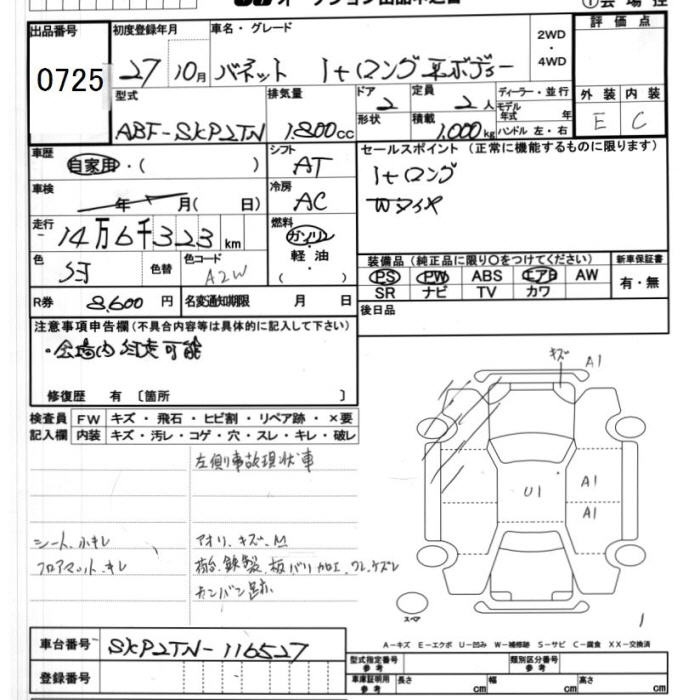 出品番号 0725
初度登録年月 27年10月
車名・グレード バネット 1tロング平ボディー
2WD・4WD
評価点
外装 E 内装 C
型式 ABF-SKP2TN
排気量 1.800cc
ドア 2
形状
定員 2人
積載 1.000kg
ディーラー・並行
モデル年式 年
ハンドル 左・右
車歴 自家用・( )
シフト AT
セールスポイント (正常に機能するものに限ります)
1tロング
Wタイヤ
車検 年 月( 日)
冷房 AC
走行 14万6千323km
燃料 ガソリン・軽油・
色 色替
色コード A2W
装備品(純正品に限り○をつけてください)
PS PW ABS エアB AW
SR ナビ TV カワ
新車保証書 有・無
R券 8,600円
名変通知期限 月 日
後日品
注意事項申告欄(不具合内容等は具体的に記入して下さい)
・会場内自走可能
修復歴 有〔箇所 〕
検査員記入欄
FW キズ・飛石・ヒビ割・リペア跡・×要
内装 キズ・汚レ・コゲ・穴・スレ・キレ・破レ
左側事故現状車
シート小キレ アオリ.キズ.M
フロアマット.キレ 荷台.鉄製.板バリ加工.ワレ.ケズレ
カンバン跡
キズ A1
U1
A1
A1
スペア
1
A-キズ E-エクボ U-凹み W-補修跡 S-サビ C-腐食 XX-交換済
車台番号 SKP2TN-116527
登録番号
型式指定番号 参考
類別区分番号 参考
車庫証明用 参考 長さ cm 幅 cm 高さ cm